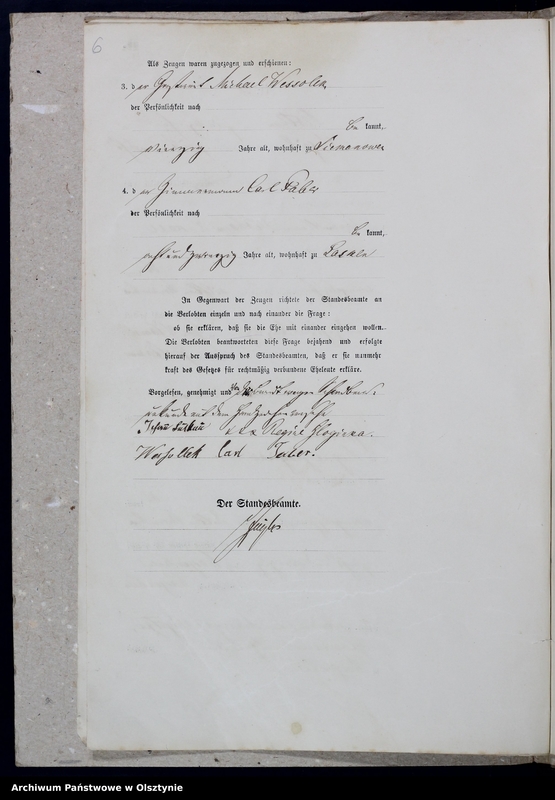 6
Als Zeugen waren zugezogen und erschienen:
3. der Gastwirt Michael Wessolek
der Persönlichkeit nach
be kannt,
vierzig Jahre alt, wohnhaft zu
4. der Zimmermann Carl Faber
der Persönlichkeit nach
be kannt,
acht und zwanzig Jahre alt, wohnhaft zu
In Gegenwart der Zeugen richtete der Standesbeamte an
die Verlobten einzeln und nach einander die Frage:
ob sie erklären, daß sie die Ehe mit einander eingehen wollen.
Die Verlobten beantworteten diese Frage bejahend und erfolgte
hierauf der Ausspruch des Standesbeamten, daß er sie nunmehr
kraft des Gesetzes für rechtmäßig verbundene Eheleute erkläre.
Vorgelesen, genehmigt und wegen
mit dem Handzeichen versehen
xxx Regine
Wessollek Carl Faber.
Der Standesbeamte.
Archiwum Państwowe w Olsztynie